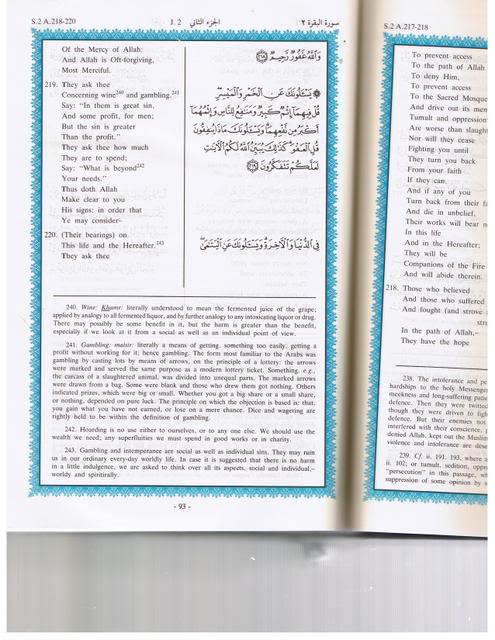 S.2 A.218-220
J. 2 الجزء الثاني
سورة البقرة ٢
Of the Mercy of Allah:
And Allah is Oft-forgiving,
Most Merciful.
وَاللَّهُ غَفُورٌ رَحِيمٌ ﴿٢١٨﴾
219. They ask thee
Concerning wine240 and gambling.241
Say: "In them is great sin,
And some profit, for men;
But the sin is greater
Than the profit."
They ask thee how much
They are to spend;
Say: "What is beyond242
Your needs."
Thus doth Allah
Make clear to you
His signs: in order that
Ye may consider–
يَسْئَلُونَكَ عَنِ الْخَمْرِ وَالْمَيْسِرِ
قُلْ فِيهِمَا إِثْمٌ كَبِيرٌ وَمَنَافِعُ لِلنَّاسِ وَإِثْمُهُمَا
أَكْبَرُ مِن نَّفْعِهِمَا وَيَسْئَلُونَكَ مَاذَا يُنفِقُونَ
قُلِ الْعَفْوَ كَذَلِكَ يُبَيِّنُ اللَّهُ لَكُمُ الْآيَاتِ
لَعَلَّكُمْ تَتَفَكَّرُونَ ﴿٢١٩﴾
220. (Their bearings) on
This life and the Hereafter.243
They ask thee
فِي الدُّنْيَا وَالْآخِرَةِ وَيَسْئَلُونَكَ عَنِ الْيَتَامَى
240. Wine: Khamr: literally understood to mean the fermented juice of the grape;
applied by analogy to all fermented liquor, and by further analogy to any intoxicating liquor or drug.
There may possibly be some benefit in it, but the harm is greater than the benefit,
especially if we look at it from a social as well as an individual point of view.
241. Gambling: maisir: literally a means of getting. something too easily, getting a
profit without working for it; hence gambling. The form most familiar to the Arabs was
gambling by casting lots by means of arrows, on the principle of a lottery: the arrows
were marked and served the same purpose as a modern lottery ticket. Something, e.g.,
the carcass of a slaughtered animal, was divided into unequal parts. The marked arrows
were drawn from a bag. Some were blank and those who drew them got nothing. Others
indicated prizes, which were big or small. Whether you got a big share or a small share,
or nothing, depended on pure luck. The principle on which the objection is based is: that,
you gain what you have not earned, or lose on a mere chance. Dice and wagering are
rightly held to be within the definition of gambling.
242. Hoarding is no use either to ourselves, or to any one else. We should use the
wealth we need; any superfluities we must spend in good works or in charity.
243. Gambling and intemperance are social as well as individual sins. They may ruin
us in our ordinary every-day worldly life. In case it is suggested that there is no harm
in a little indulgence, we are asked to think over all its aspects, social and individual,–
worldly and spiritually.
- 93 -
S.2 A.217-218
To prevent access
To the path of Allah
To deny Him,
To prevent access
To the Sacred Mosque
And drive out its mem
Tumult and oppression
Are worse than slaught
Nor will they cease
Fighting you until
They turn you back
From your faith
If they can.
And if any of you
Turn back from their fa
And die in unbelief,
Their works will bear n
In this life
And in the Hereafter;
They will be
Companions of the Fire
And will abide therein.
218. Those who believed
And those who suffered
And fought (and strove a
str
In the path of Allah,–
They have the hope
238. The intolerance and pe
hardships to the holy Messenger
meekness and long-suffering patie
defence. Then they were twitted
though they were driven to figh
defence. But their enemies not
interfered with their conscience,
denied Allah, kept out the Muslim
violence and intolerance are dese
239. Cf. ii. 191. 193, where a
ii. 102; or tumult, sedition, oppr
"persecution" in this passage, wh
suppression of some opinion by